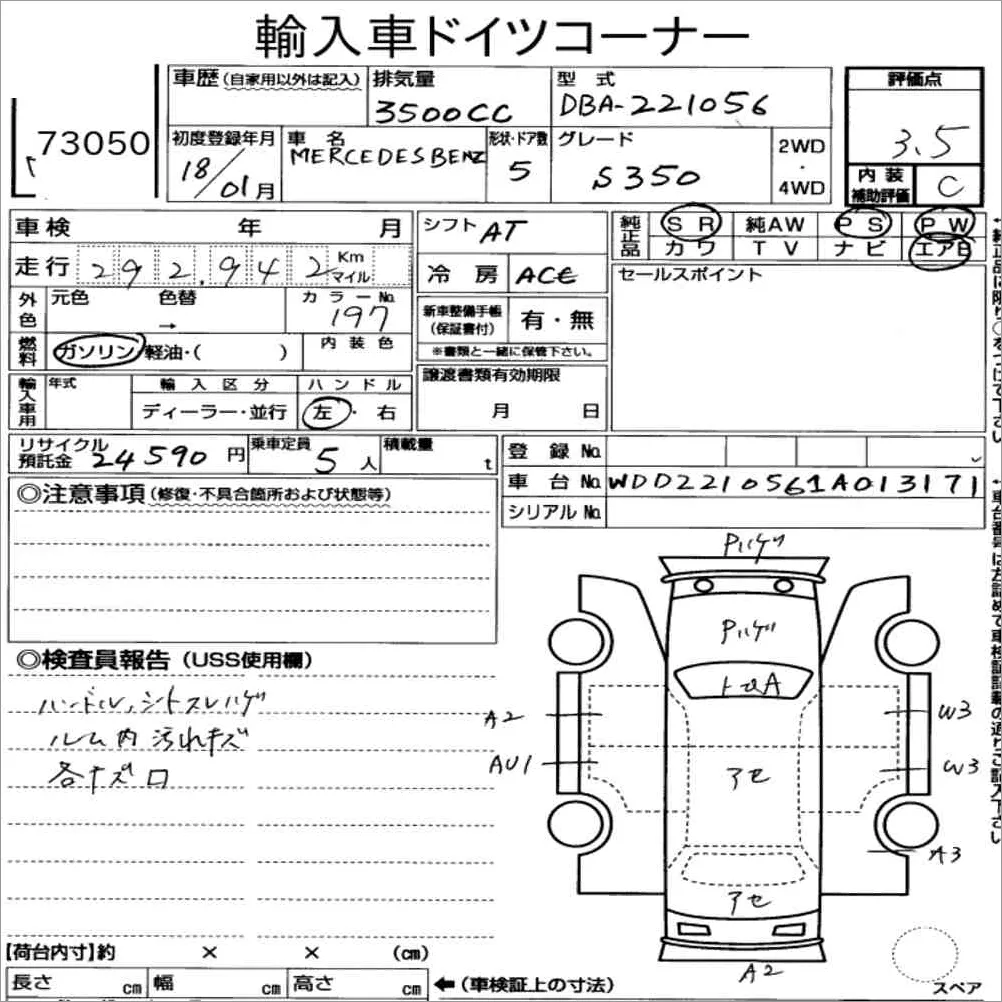 輸入車ドイツコーナー
73050
車歴 (自家用以外は記入)
排気量
3500CC
型式
DBA-221056
評価点
3.5
内装補助評価
C
初度登録年月
18/01月
車名
MERCEDESBENZ
形状・ドア数
5
グレード
S350
2WD・4WD
車検 年 月
シフト AT
純正品
SR 純AW PS PW
カワ TV ナビ エアB
走行 292,942 Km マイル
冷房 ACC
セールスポイント
外色
元色 色替 →
カラーNo.
197
新車整備手帳(保証書付)
有・無
※書類と一緒に保管下さい。
燃料
ガソリン・軽油・( )
内装色
輸入車用
年式
輸入区分
ディーラー・並行
ハンドル
左・右
譲渡書類有効期限
月 日
リサイクル預託金 24590円
乗車定員 5人
積載量 t
登録No.
車台No. WDD2210561A013171
シリアルNo.
◎注意事項 (修復・不具合箇所および状態等)
◎検査員報告 (USS使用欄)
ハンドル、シートスレハゲ
ルーム内 汚れキズ
各キズロ
Pハゲ
Pハゲ
トビA
A2
W3
AU1
W3
アセ
A3
アセ
A2
スペア
【荷台内寸】約 × × (cm)
長さ cm 幅 cm 高さ cm
←(車検証上の寸法)